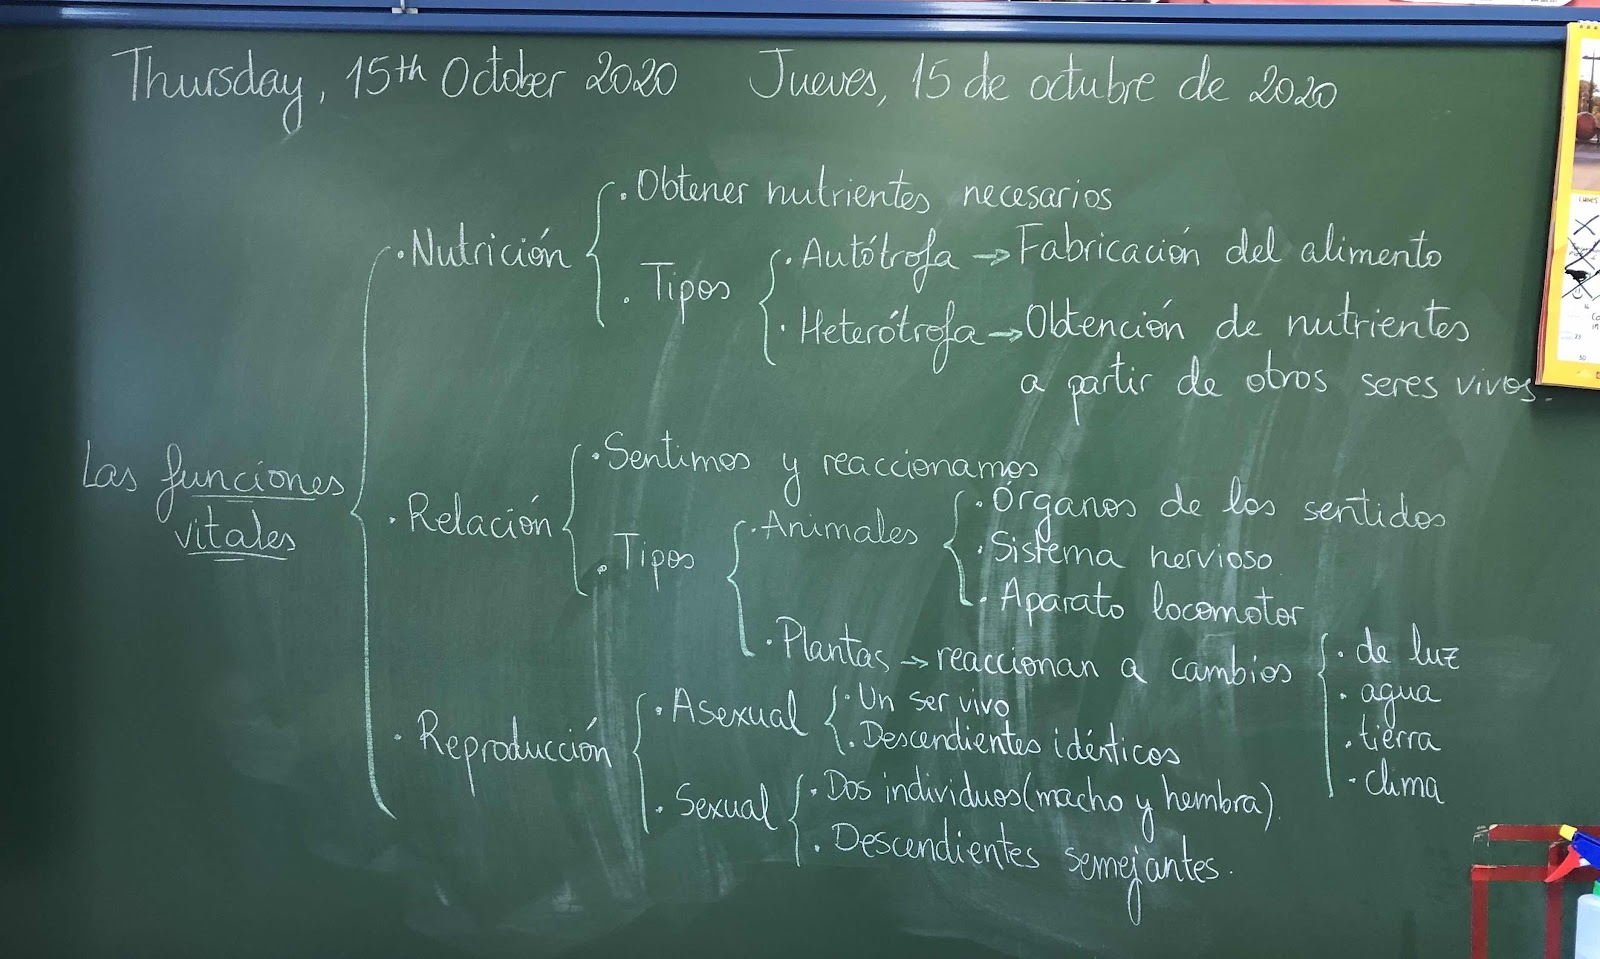 Thursday, 15th October 2020 Jueves, 15 de octubre de 2020
Las funciones
vitales
· Nutrición
· Obtener nutrientes necesarios
· Tipos
· Autótrofa → Fabricación del alimento
· Heterótrofa → Obtención de nutrientes
a partir de otros seres vivos.
· Relación
· Sentimos y reaccionamos
· Tipos
· Animales
· Órganos de los sentidos
· Sistema nervioso
· Aparato locomotor
· Plantas → reaccionan a cambios
· de luz
· agua
· tierra
· clima
· Reproducción
· Asexual
· Un ser vivo
· Descendientes idénticos
· Sexual
· Dos individuos (macho y hembra).
· Descendientes semejantes.